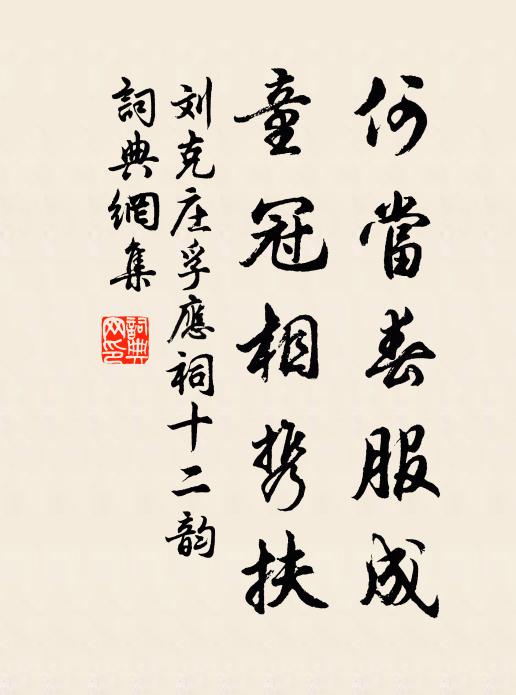 何當春服成
童冠相携扶
刘克庄孚應祠十二韵
詞典網集
詞典网印